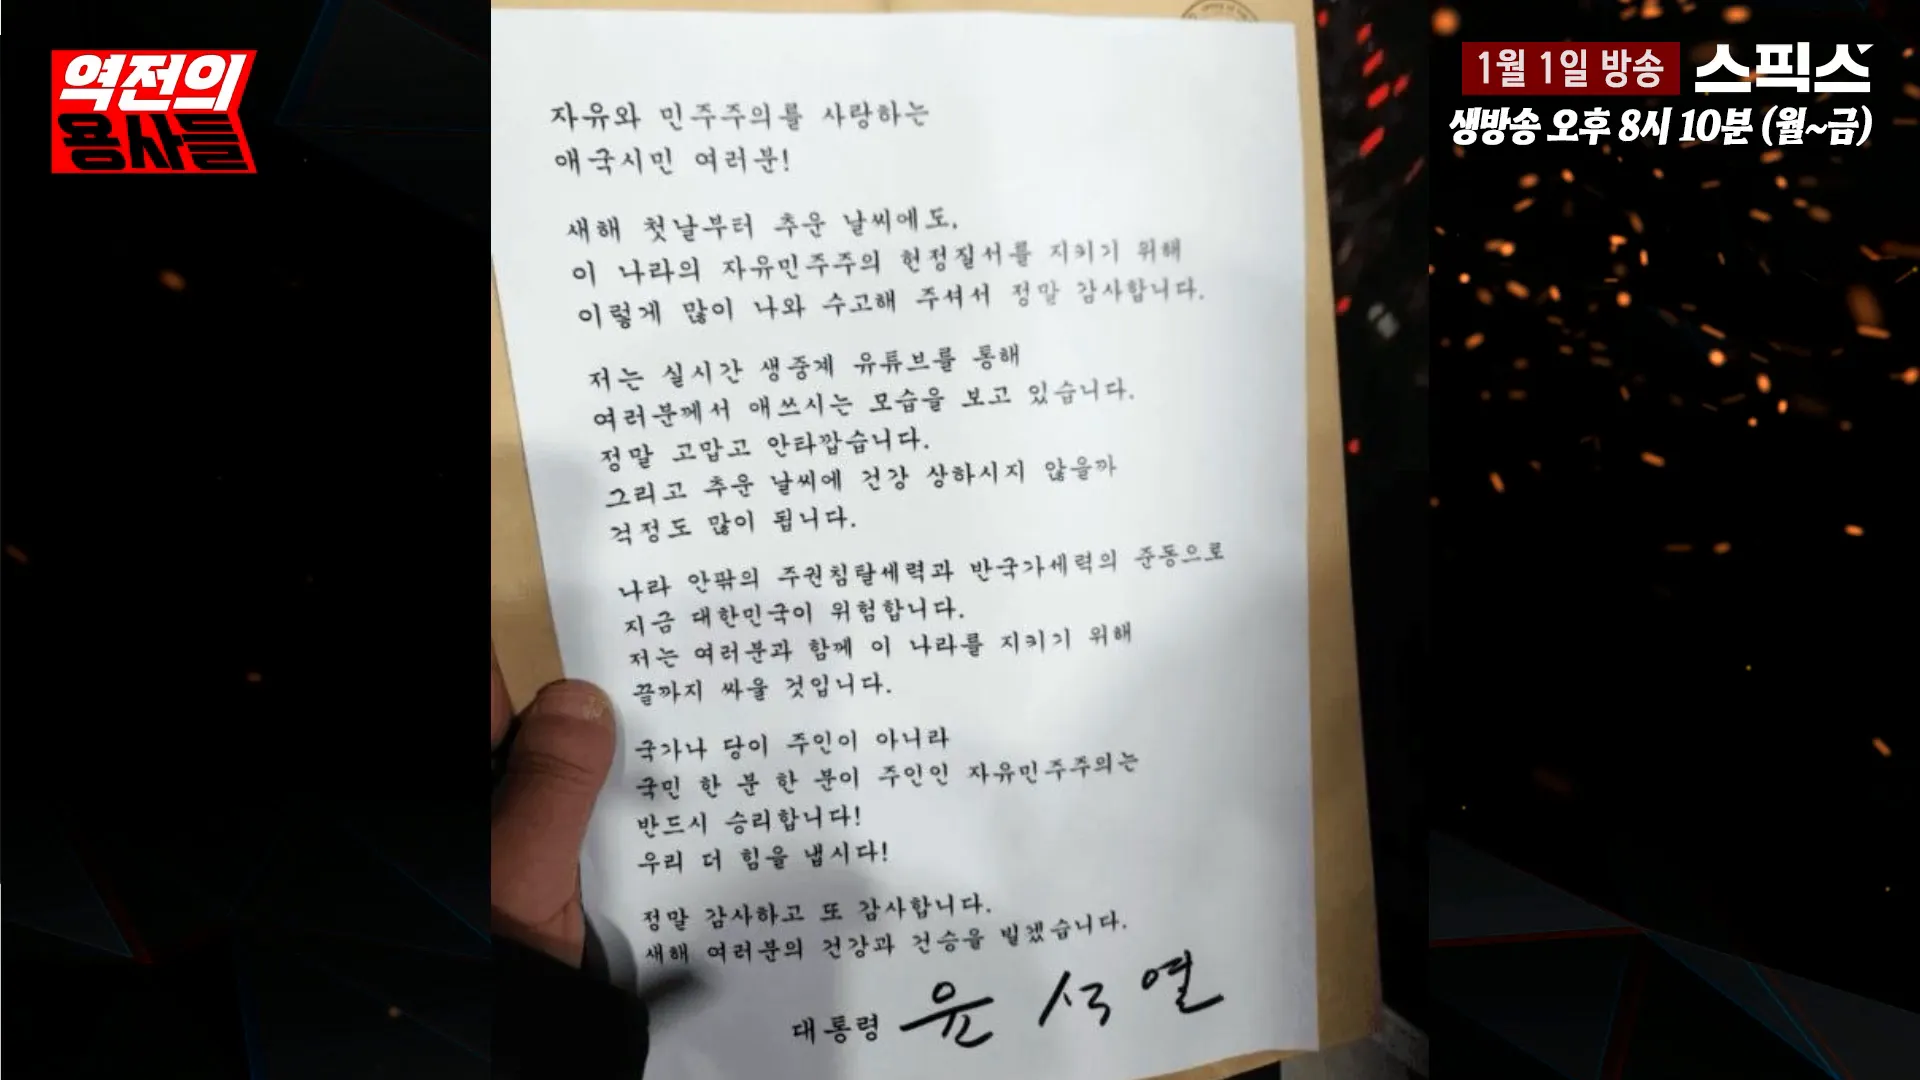 역전의
용사들
1월 1일 방송 스픽스
생방송 오후 8시 10분 (월~금)
자유와 민주주의를 사랑하는
애국시민 여러분!
새해 첫날부터 추운 날씨에도,
이 나라의 자유민주주의 헌정질서를 지키기 위해
이렇게 많이 나와 수고해 주셔서 정말 감사합니다.
저는 실시간 생중계 유튜브를 통해
여러분께서 애쓰시는 모습을 보고 있습니다.
정말 고맙고 안타깝습니다.
그리고 추운 날씨에 건강 상하시지 않을까
걱정도 많이 됩니다.
나라 안팎의 주권침탈세력과 반국가세력의 준동으로
지금 대한민국이 위험합니다.
저는 여러분과 함께 이 나라를 지키기 위해
끝까지 싸울 것입니다.
국가나 당이 주인이 아니라
국민 한 분 한 분이 주인인 자유민주주의는
반드시 승리합니다!
우리 더 힘을 냅시다!
정말 감사하고 또 감사합니다.
새해 여러분의 건강과 건승을 빌겠습니다.
대통령 윤석열